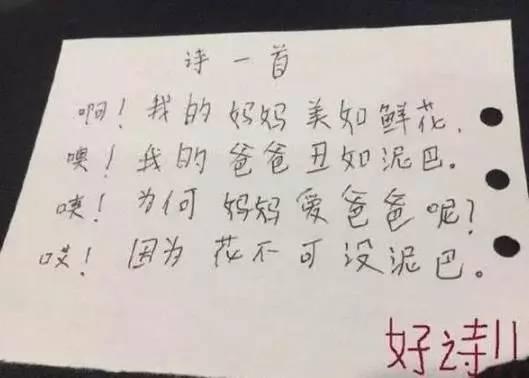 诗一首
啊！我的妈妈美如鲜花，
噢！我的爸爸丑如泥巴。
咦！为何妈妈爱爸爸呢？
哎！因为花不可没泥巴。
好诗！！